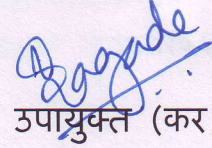 उपायुक्त (कर